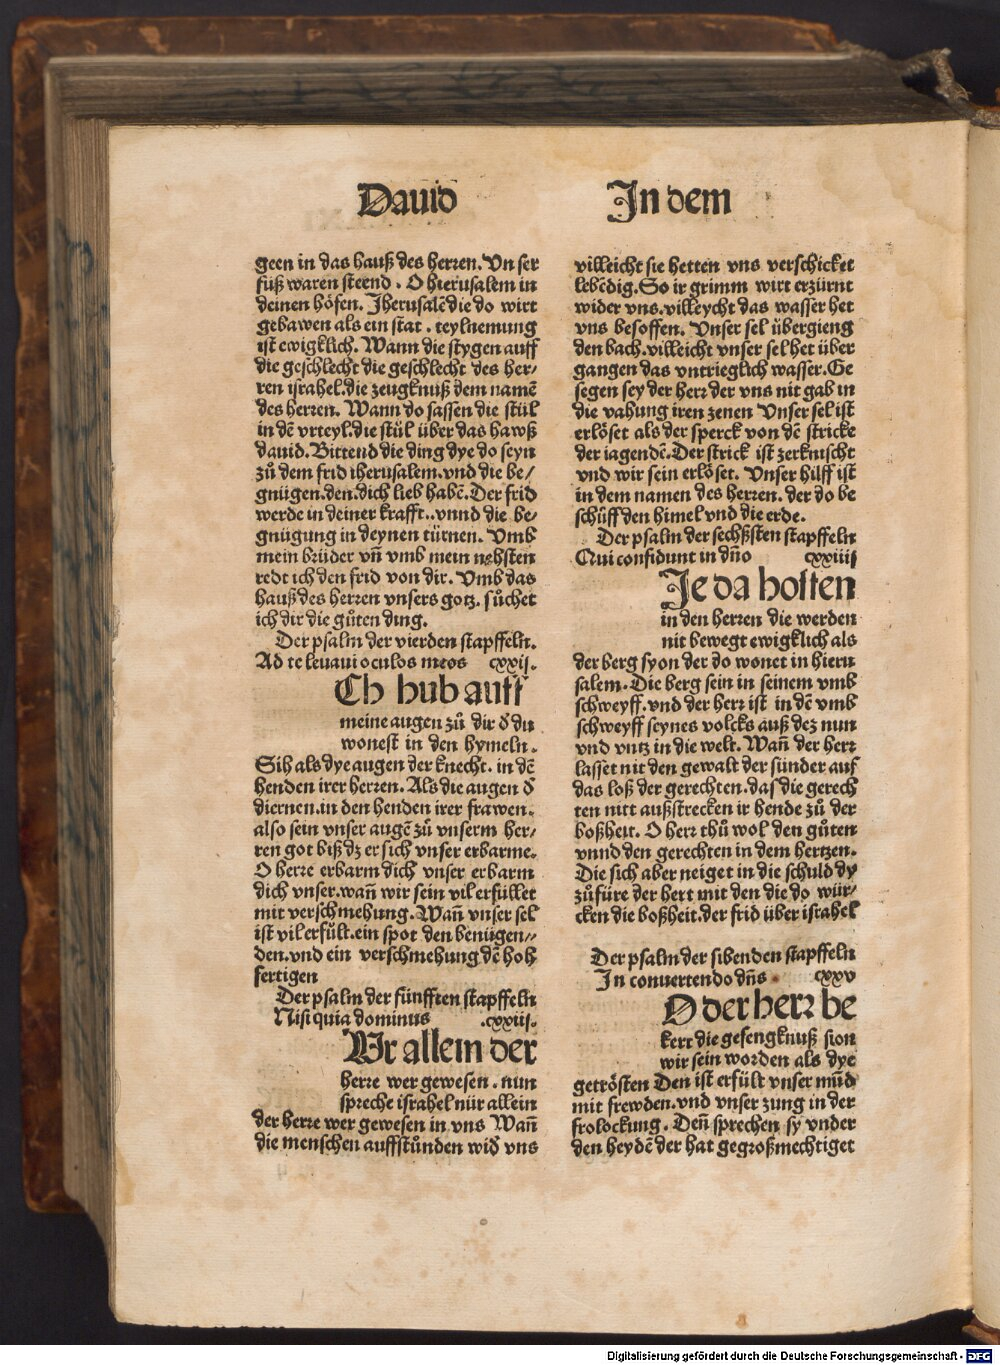 Dauid
In dem
geen in das hauß des herren. Vn ser
füß waren steend . O hierusalem in
deinen höfen. Jherusalē die do wirt
gebawen als ein stat . teylnemung
ist ewigklich. Wann die stygen auff
die geschlecht die geschlecht des her⸗
ren israhel.die zeugknuß dem namē
des herren. Wann do sassen die stül
in dē vrteyl.die stül über das hawß
dauid. Bittend die ding dye do seyn
zů dem frid iherusalem.vnd die be⸗
gnügen.den.dich lieb habē.Der frid
werde in deiner krafft..vnnd die be⸗
gnügung in deynen türnen. Vmb
mein brüder vn̄ vmb mein nehsten
redt ich den frid von dir. Vmb das
hauß des herren vnsers gotz. sůchet
ich dir die gůten ding.
Der psalm der vierden stapffeln.
Ad te leuaui oculos meos cxxij.
Ch hub auff
meine augen zů dir ð du
wonest in den hymeln.
Sih als dye augen der knecht. in dē
henden irer herren. Als die augen ð
diernen.in den henden irer frawen.
also sein vnser augē zů vnserm her⸗
ren got biß dz er sich vnser erbarme.
O herre erbarm dich vnser erbarm
dich vnser.wan̄ wir sein vil erfüllet
mit verschmehung. Wan̄ vnser sel
ist vil erfült.ein spot den benügen⸗
den.vnd ein verschmehung dē hoh
fertigen
Der psalm der fünfften stapffeln
Nisi quia dominus .cxxiij.
Vr allein der
herre wer gewesen . nun
spreche israhel nür allein
der herre wer gewesen in vns Wan̄
die menschen auffstůnden wið vns
villeicht sie hetten vns verschicket
lebēdig. So ir grimm wirt erzürnt
wider vns.villeycht das wasser het
vns besoffen. Vnser sel übergieng
den bach.villeicht vnser sel het über
gangen das vntrieglich wasser. Ge
segen sey der herr der vns nit gab in
die vahung iren zenen Vnser sel ist
erlöset als der sperck von dē stricke
der iagendē. Der strick ist zerknischt
vnd wir sein erlöset. Vnser hilff ist
in dem namen des herren. der do be
schüff den himel vnd die erde.
Der psalm der sechßsten stapffeln
Qui confidunt in dn̄o cxxiiij
Je da hoffen
in den herren die werden
nit bewegt ewigklich als
der berg syon der do wonet in hieru
salem. Die berg sein in seinem vmb
schweyff.vnd der herr ist in dē vmb
schweyff seynes volcks auß dez nun
vnd vntz in die welt. Wan̄ der herr
lasset nit den gewalt der sünder auf
das loß der gerechten.das die gerech
ten nitt außstrecken ir hende zů der
boßheit. O herr thů wol den gůten
vnnd den gerechten in dem hertzen.
Die sich aber neiget in die schuld dy
zůfüre der herr mit den die do wür⸗
cken die boßheit.der frid über israhel
Der psalm der sibenden stapffeln
In conuertendo dn̄s . cxxv
O der herr be
kert die gefengknuß sion
wir sein worden als dye
getrösten Den ist erfült vnser mūd
mit frewden.vnd vnser zung in der
frolockung . Den̄ sprechen sy vnder
den heydē der hat gegroßmechtiget
Digitalisierung gefördert durch die Deutsche Forschungsgemeinschaft - DFG